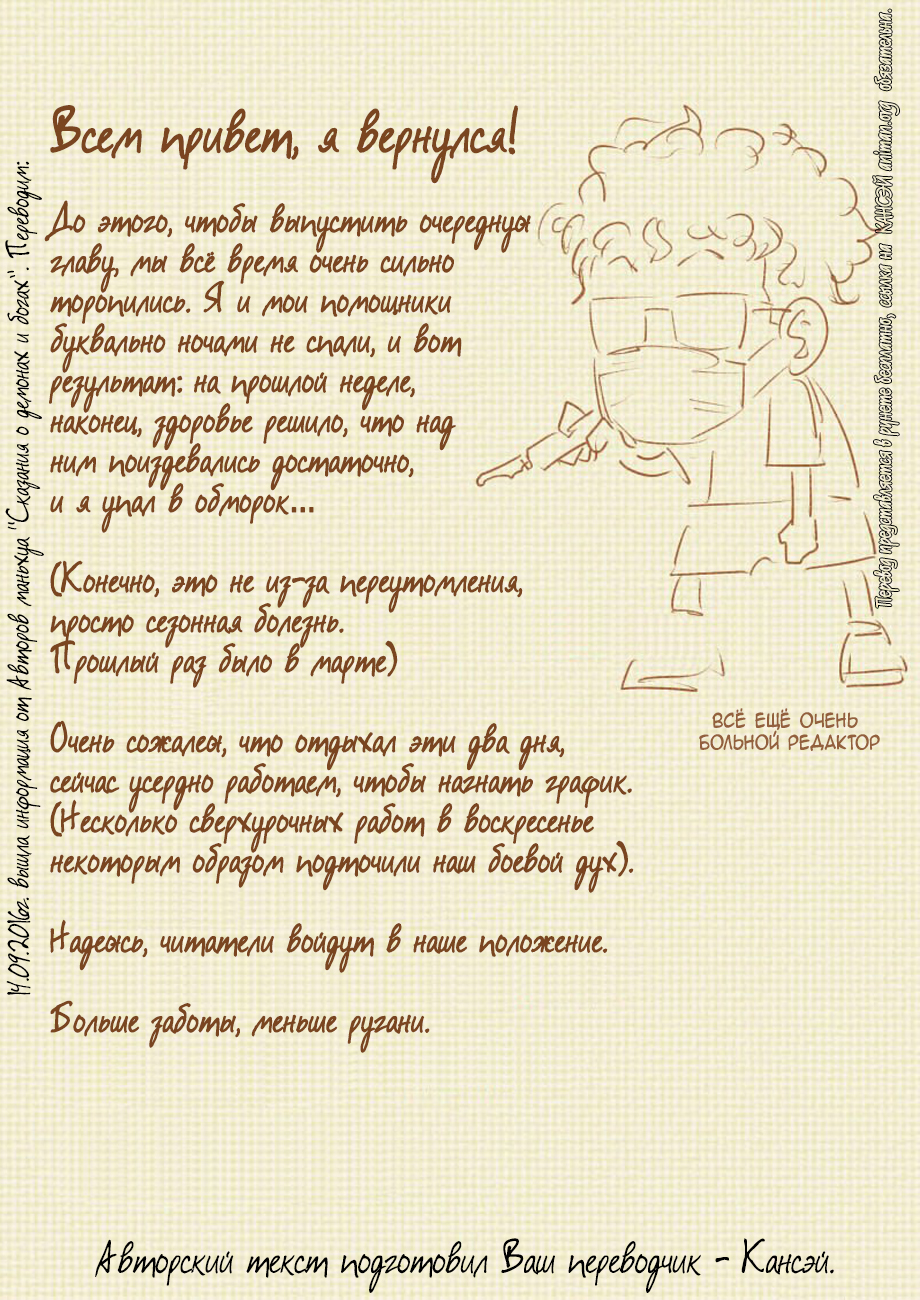 Всем привет, я вернулся!
До этого, чтобы выпустить очередную
главу, мы всё время очень сильно
торопились. Я и мои помощники
буквально ночами не спали, и вот
результат: на прошлой неделе,
наконец, здоровье решило, что над
ним поиздевались достаточно,
и я упал в обморок...
(Конечно, это не из-за переутомления,
просто сезонная болезнь.
Прошлый раз было в марте)
Очень сожалею, что отдыхал эти два дня,
сейчас усердно работаем, чтобы нагнать график.
(Несколько сверхурочных работ в воскресенье
некоторым образом подточили наш боевой дух).
Надеюсь, читатели войдут в наше положение.
Больше заботы, меньше ругани.
ВСЁ ЕЩЁ ОЧЕНЬ
БОЛЬНОЙ РЕДАКТОР
14.09.2016г. вышла информация от Авторов маньхуа "Сказания о демонах и богах". Переводим:
Перевод представляется в рунете бесплатно, ссылка на КАНСЭЙ animan.org обязательна.
Авторский текст подготовил Ваш переводчик - Кансэй.